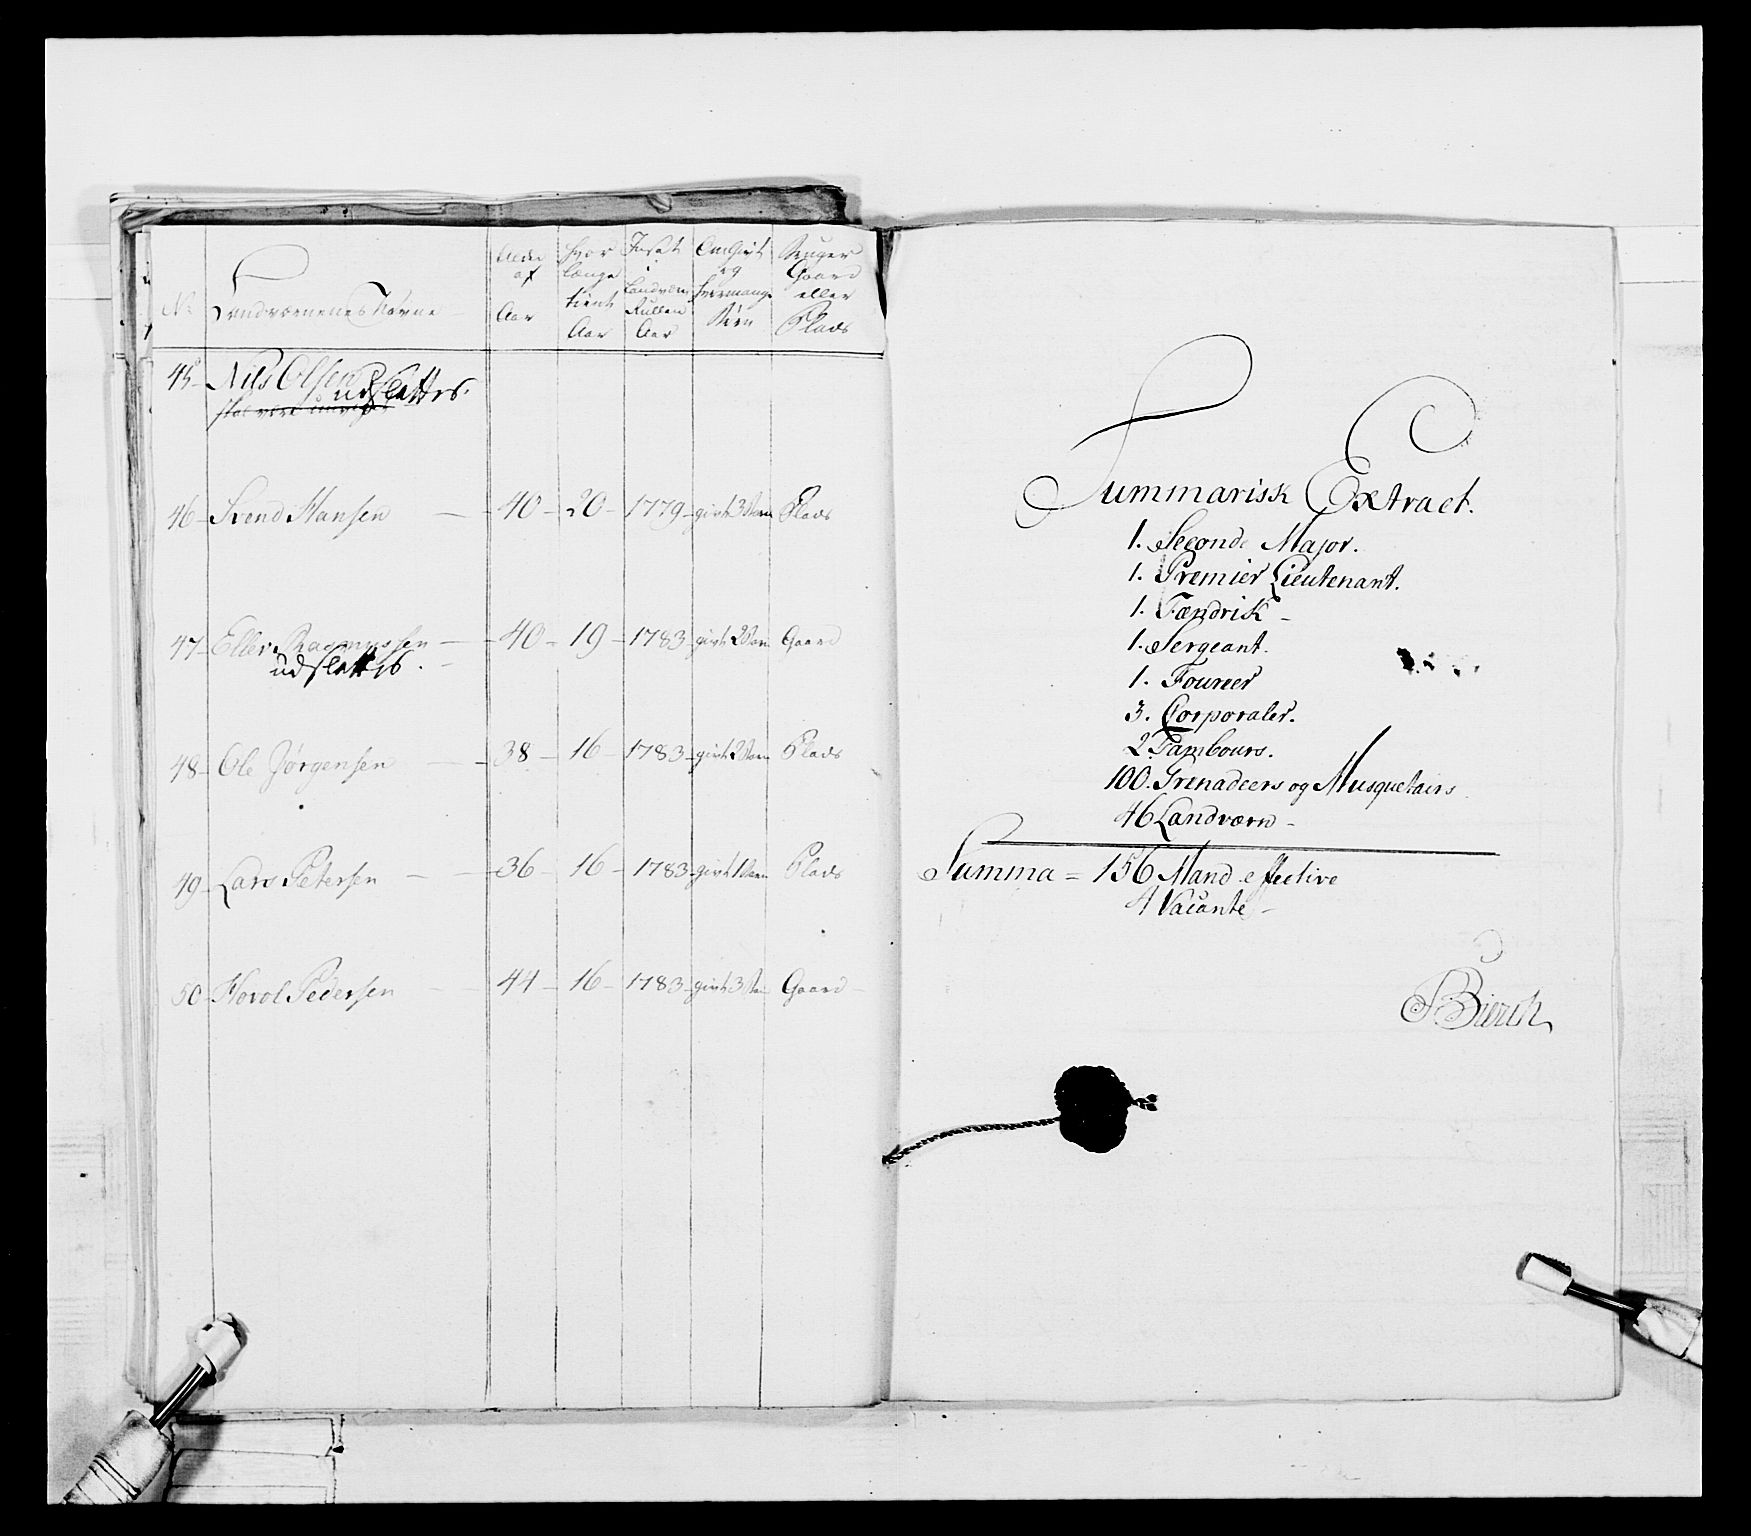 No
Landværnenes Navne
Alder
af
Aar
hvor
længe
tient
Aar
Indsat
i
Landværn
Rullen
Aar
Om Givt
og
hvormange
Børn
Bruger
Gaard
eller
Plads
45 Nils Olsen
udslettes.
skal være
46 Svend Hansen — 40 – 20 – 1779 – givt 3 Børn Plads
47 Eller Rasmussen — 40 – 19 – 1783 – givt 2 Børn Gaard
udslettes.
48 Ole Jørgensen — 38 – 16 – 1783 – givt 2 Børn Plads
49 Lars Petersen — 36 – 16 – 1783 – givt 1 Børn Plads
50 Horol Pedersen — 44 – 16 – 1783 – givt 3 Børn Gaard
Summarisk Extract.
1. Seconde Major.
1. Premier Lieutenant.
1. Fændrik –
1. Sergeant.
1. Fourier
3. Corporaler.
2. Tambours.
100. Grenadeers og Musquetairs
46 Landværn –
Summa = 156 Mand effective
4 Vacante –